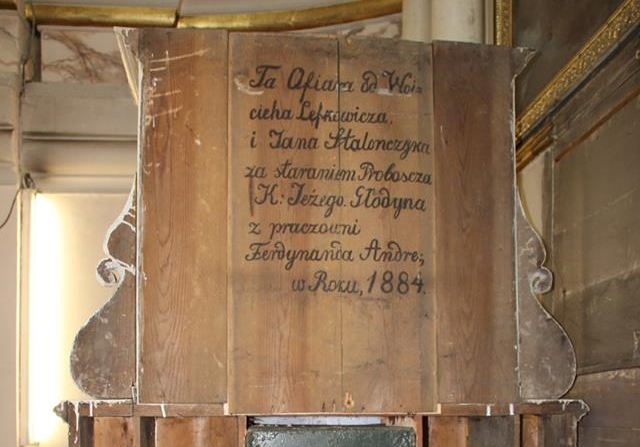 Ta Ofiara od Woi=
cieha Lefkowicza.
i Jana Stalonczyka
za staraniem Proboscza
K: Jeżego. Głodyna
z praczowni
Ferdynanda Andre,
w Roku, 1884.